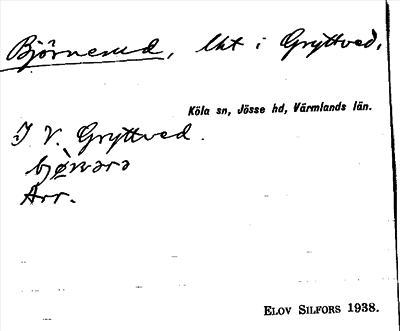 Björnerud, lht i Gryttved.
Köla sn, Jösse hd, Värmlands län.
I V. Gryttved.
Arr.
ELOV SILFORS 1938.